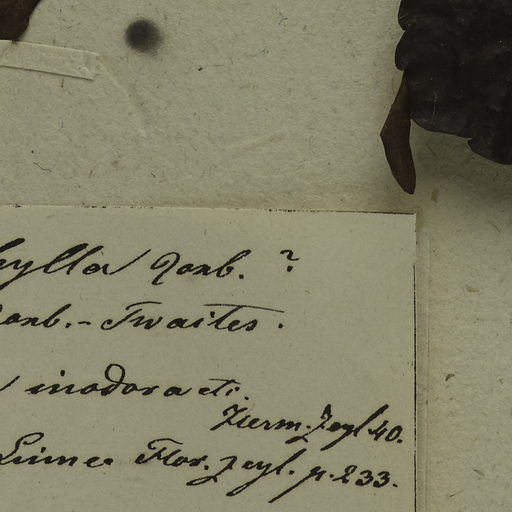 hylla Roxb. ?
Roxb. - Twaites.
inodora etc.
Herm. Zeyl 40.
Linnea Flor. zeyl. p. 233.